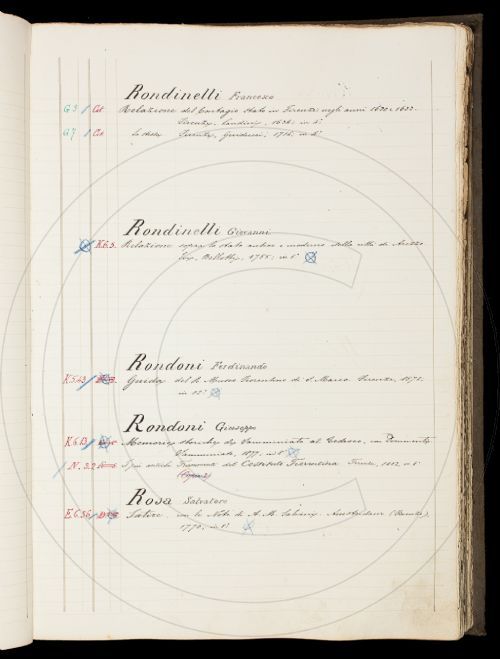 Rondinelli Francesco
G 3 / Cat. Relazione del Contagio stato in Firenze negli anni 1630 e 1633
Firenze, Landini, 1634; in 4°
G 7 / Cat. La stessa Firenze, Guiducci, 1714; in 4°
Rondinelli Giovanni
K.6.3. Relazione sopra lo stato antico e moderno della città di Arezzo
Bellotti, 1755; in 8°
Rondoni Ferdinando
K.5.43 Guida del R. Museo Fiorentino di S. Marco Firenze, 1872.
in 12°
Rondoni Giuseppe
K.6.13 Memorie storiche di Samminiato al Tedesco, con Documenti
Samminiato, 1877, in 8°
N. 3.2 I più antichi Frammenti del Costituto Fiorentino Firenze, 1882 in 8°
Rosa Salvatore
E.6.56 Satire con le Note di A. M. Salvini. Amsterdam
1770, in 8°